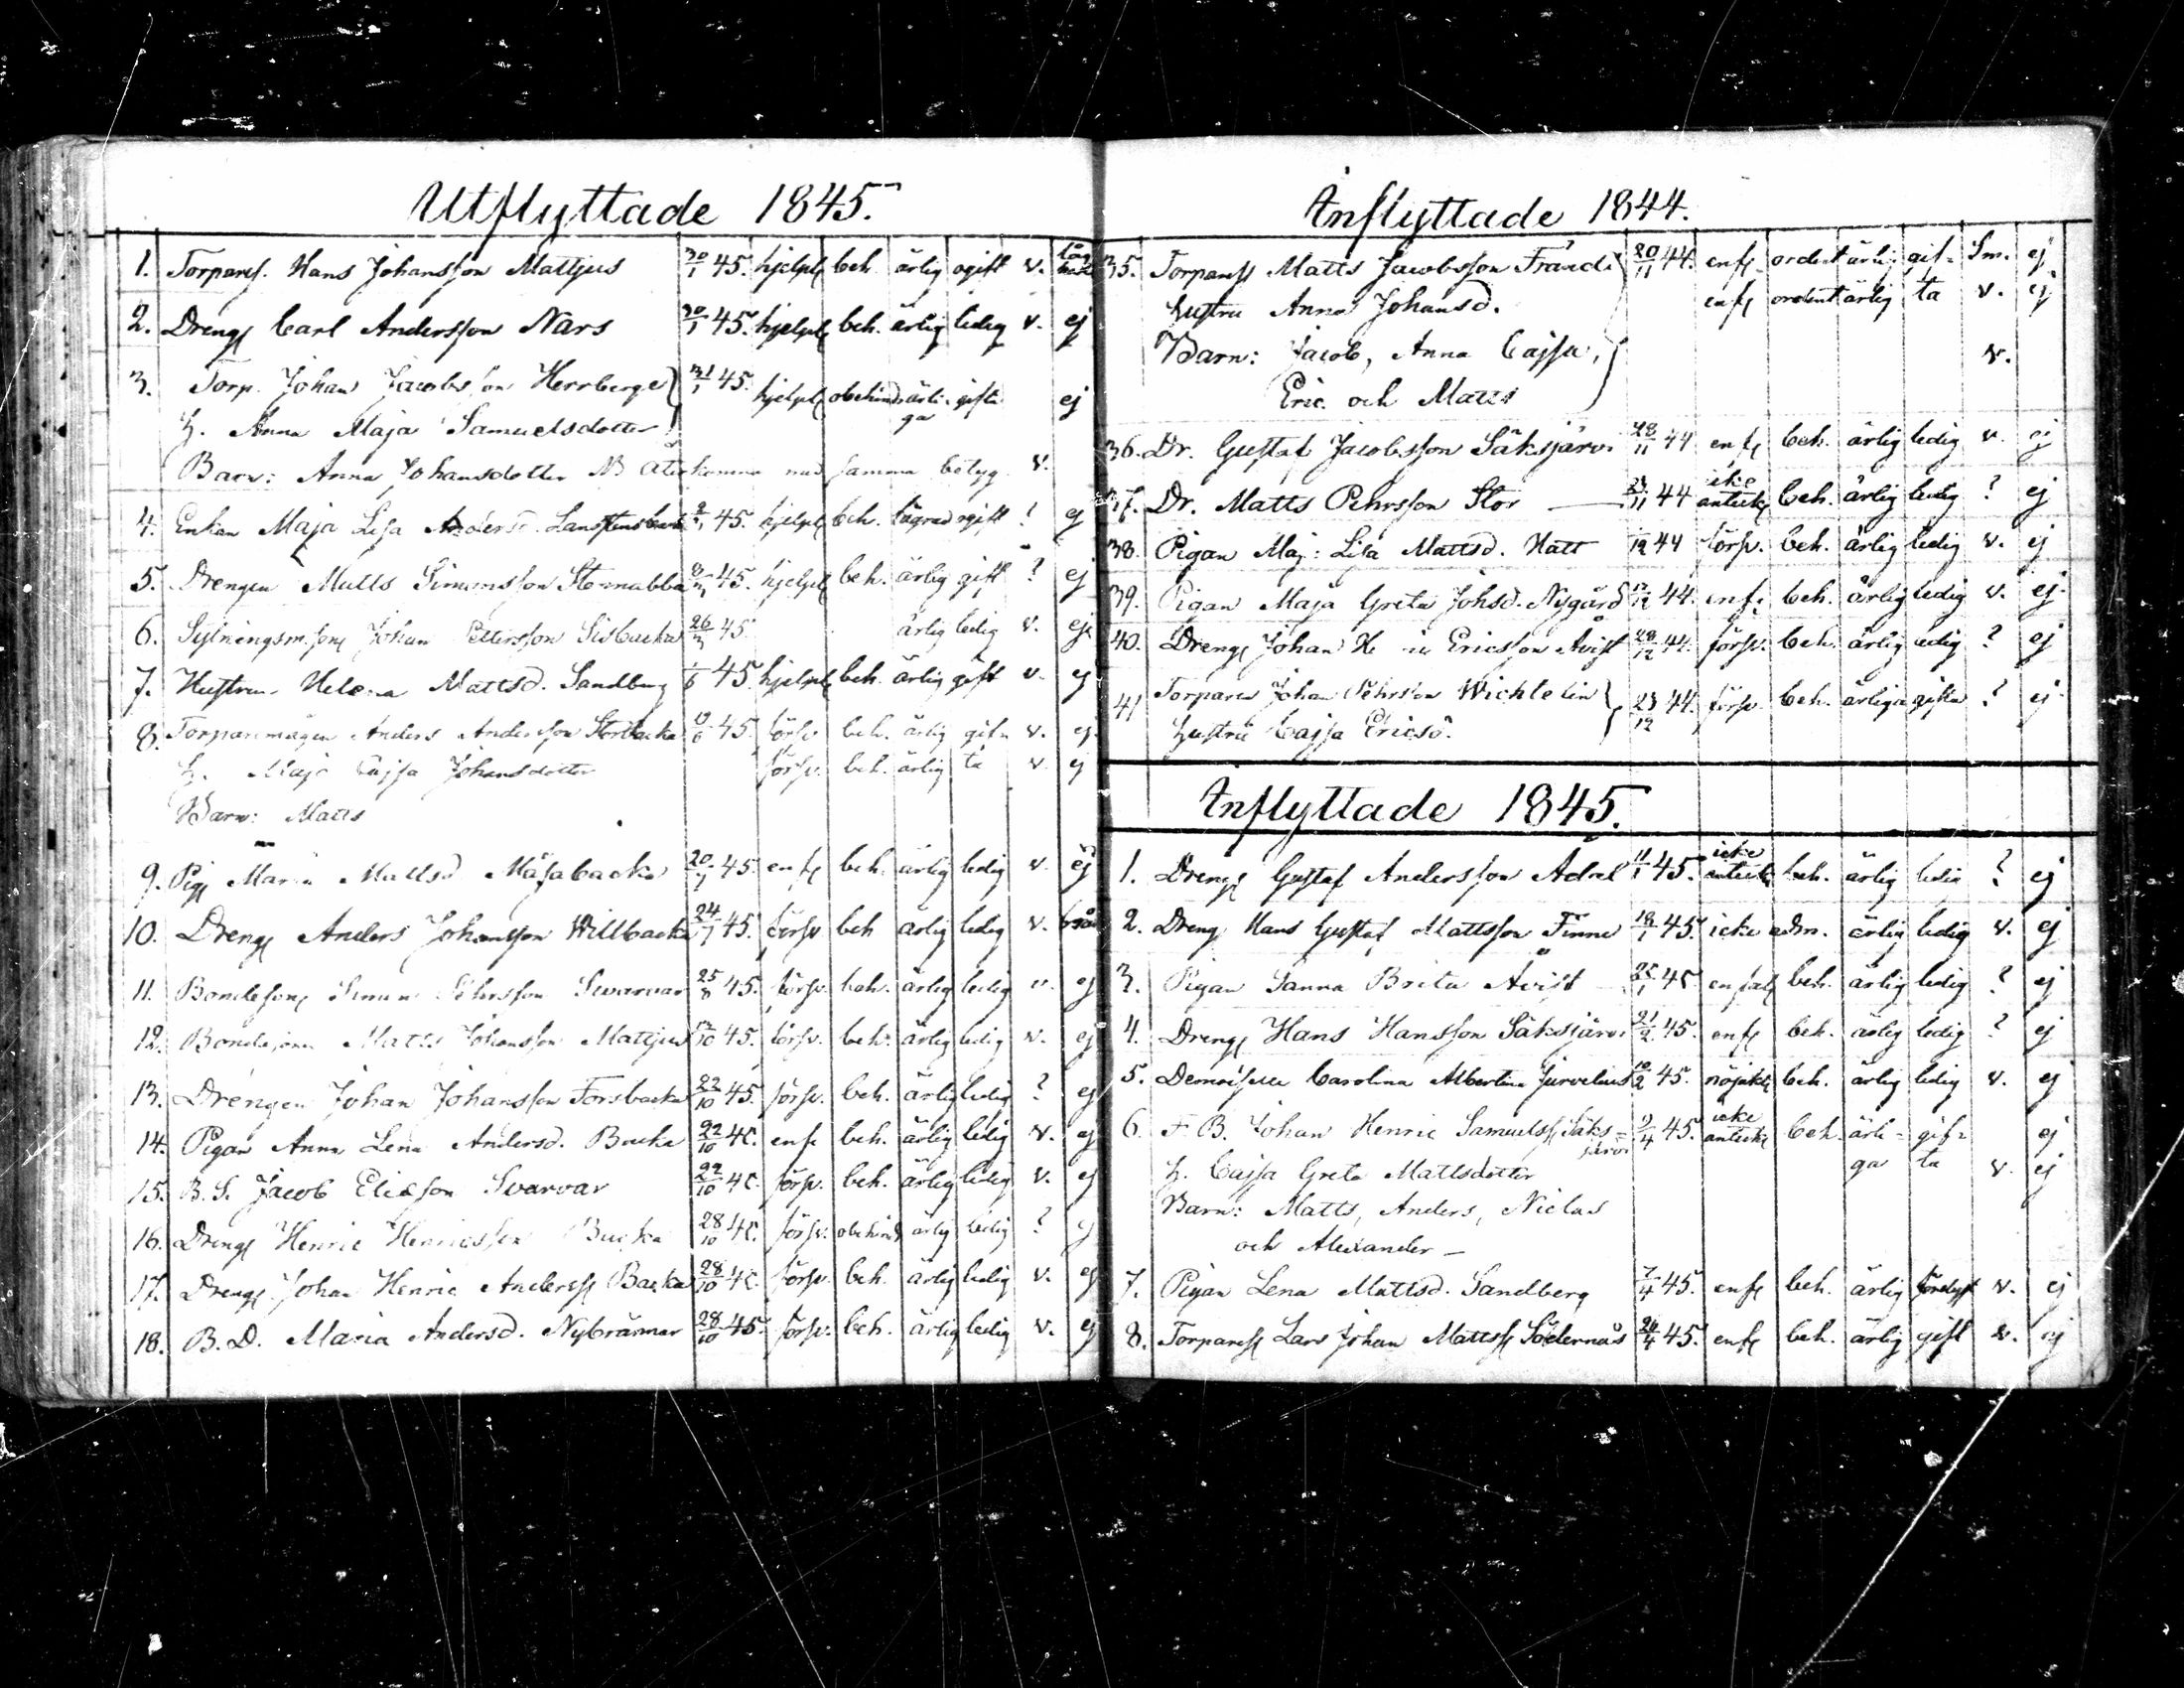 Utflyttade 1845.
1. Torparess. Hans Johansson Mattjus 30/1 45. hjelpl beh. ärlig ogift v.
2. Drengs Carl Andersson Nars 30/1 45. hjelpl beh. ärlig ledig v. ej
3. Torp. Johan Jacobsson Herrberge 31/1 45. hjelpl obehind ärli- gifta ej
h. Anna Maja Samuelsdotter ga
Barn: Anna Johansdotter NB Återkomna med samma betyg v.
4. Enkan Maja Lisa Andersd. 45. hjelpl beh. ogift ? ej
5. Drengen Matts Simonsson Stornabba 45. hjelpl beh. ärlig gift ? ej
6. Johan Pettersson Sisbacka 26/3 45 ärlig ledig v. ej
7. Hustrun Helena Mattsd. Sandberg 45. hjelpl beh. ärlig gift v. ej
8. Torparemågen Anders Andersson Storbacka 45. försv. beh. ärlig gif- v. ej
h. Maja Cajsa Johansdotter försv. beh. ärlig ta v. ej
Barn: Matts
9. Pig Maria Mattsd Måsabacka 20/7 45. enf beh. ärlig ledig v. ej
10. Drengs Anders Johansson Willbacka 24/7 45. försv beh ärlig ledig v.
11. Bondeson Simon Pehrsson Swarvar 25/8 45. försv. beh. ärlig ledig v. ej
12. Bondesonen Matts Johansson Mattjus 45. försv. beh. ärlig ledig v. ej
13. Drengen Johan Johansson Forsbacka 22/10 45. försv. beh. ärlig ledig ? ej
14. Pigan Anna Lena Andersd. Backa 22/10 45. enf beh. ärlig ledig v. ej
15. B. S. Jacob Elisson Svarvar 22/10 45. försv. beh. ärlig ledig v. ej
16. Drengs Henric Henricsson Backa 28/10 45. försv. obehind ärlig ledig ? ej
17. Drengs Johan Henric Anderss Backa 28/10 45. försv. beh. ärlig ledig v. ej
18. B. D. Maria Andersd. Nybrännar 28/10 45. försv. beh. ärlig ledig v. ej
Inflyttade 1844.
35. Torparess Matts Jacobsson Frände 20/11 44. enf. ordent ärli- gif- Sm. ej
hustru Anna Johansd. enf ordent ärlig ta v. ej
Barn: Jacob, Anna Cajsa, v.
Eric och Matts
36. Dr. Gustaf Jacobsson Säksjärvi 28/11 44 enf beh. ärlig ledig v. ej
37. Dr. Matts Pehrsson Stor 44 icke anteck beh. ärlig ledig ? ej
38. Pigan Maj: Lisa Mattsd. Hatt 44 försv. beh. ärlig ledig v. ej
39. Pigan Maja Greta Johsd. Nygård 44. enf. beh. ärlig ledig v. ej
40. Drengs Johan Ericsson Åvist 28/12 44. försv. beh. ärlig ledig ? ej
41 Torparen Johan Pehrsson Wichtelin 23/12 44. försv. beh. ärliga gifta ? ej
hustru Cajsa Ericsd.
Inflyttade 1845.
1. Drengs Gustaf Andersson Adrel 11/1 45. icke anteck beh. ärlig ledig ? ej
2. Dreng Hans Gustaf Mattsson Finne 18/1 45. icke adm. ärlig ledig v. ej
3. Pigan Sanna Brita Åvist 25/1 45. enfal beh. ärlig ledig ? ej
4. Drengs Hans Hansson Säksjärvi 21/2 45. enf beh. ärlig ledig ? ej
5. Demoiselle Carolina Albertina Jurvelius 45. nöjakt beh. ärlig ledig v. ej
6. F B. Johan Henric Samuelss Säks- 45. icke anteck beh. ärli- gif- ej
järvi
h. Cajsa Greta Mattsdotter ga ta v. ej
Barn: Matts, Anders, Niclas
och Alexander —
7. Pigan Lena Mattsd. Sandberg 7/4 45. enf beh. ärlig v. ej
8. Torparess Lars Johan Mattss Södernäs 45. enf beh. ärlig gift v. ej